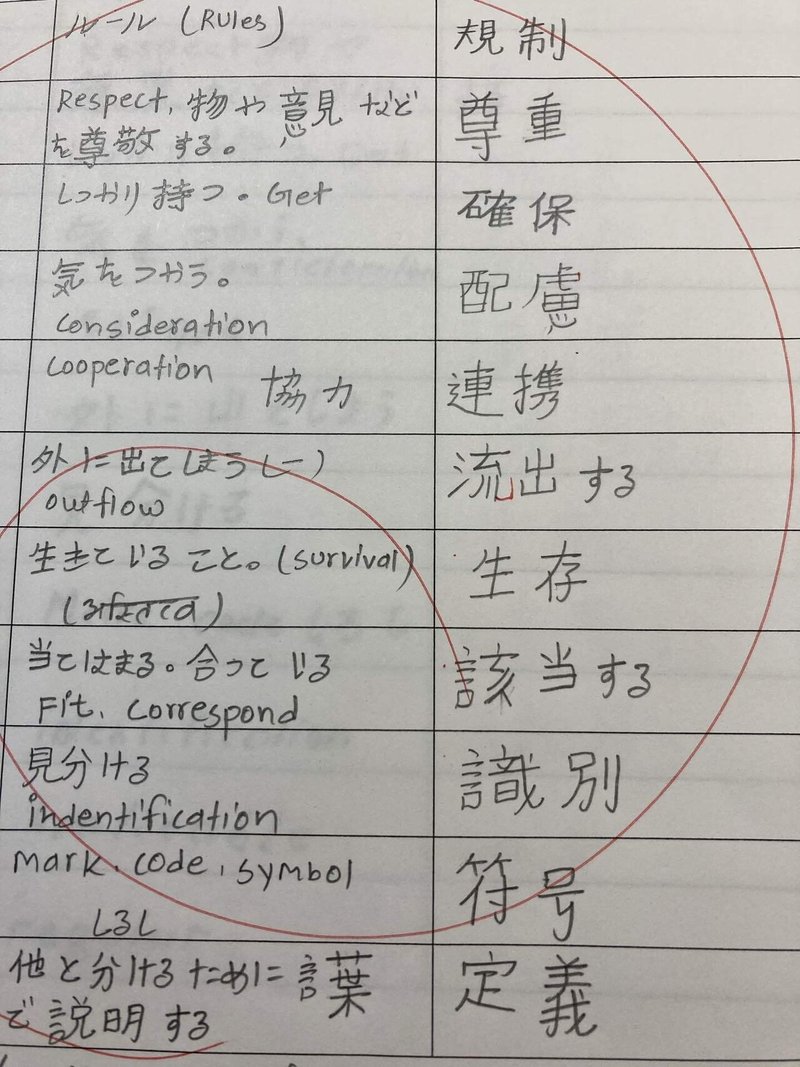 ルール (Rules)
規制
Respect, 物や意見など
を尊敬する。
尊重
しっかり持つ。Get
確保
気をつかう。
consideration
配慮
cooperation 協力
連携
外に出てしまう(ー)
outflow
流出する
生きていること。(survival)
生存
当てはまる。合っている
Fit、correspond
該当する
見分ける
indentification
識別
mark、code、symbol
しるし
符号
他と分けるために言葉
で説明する
定義